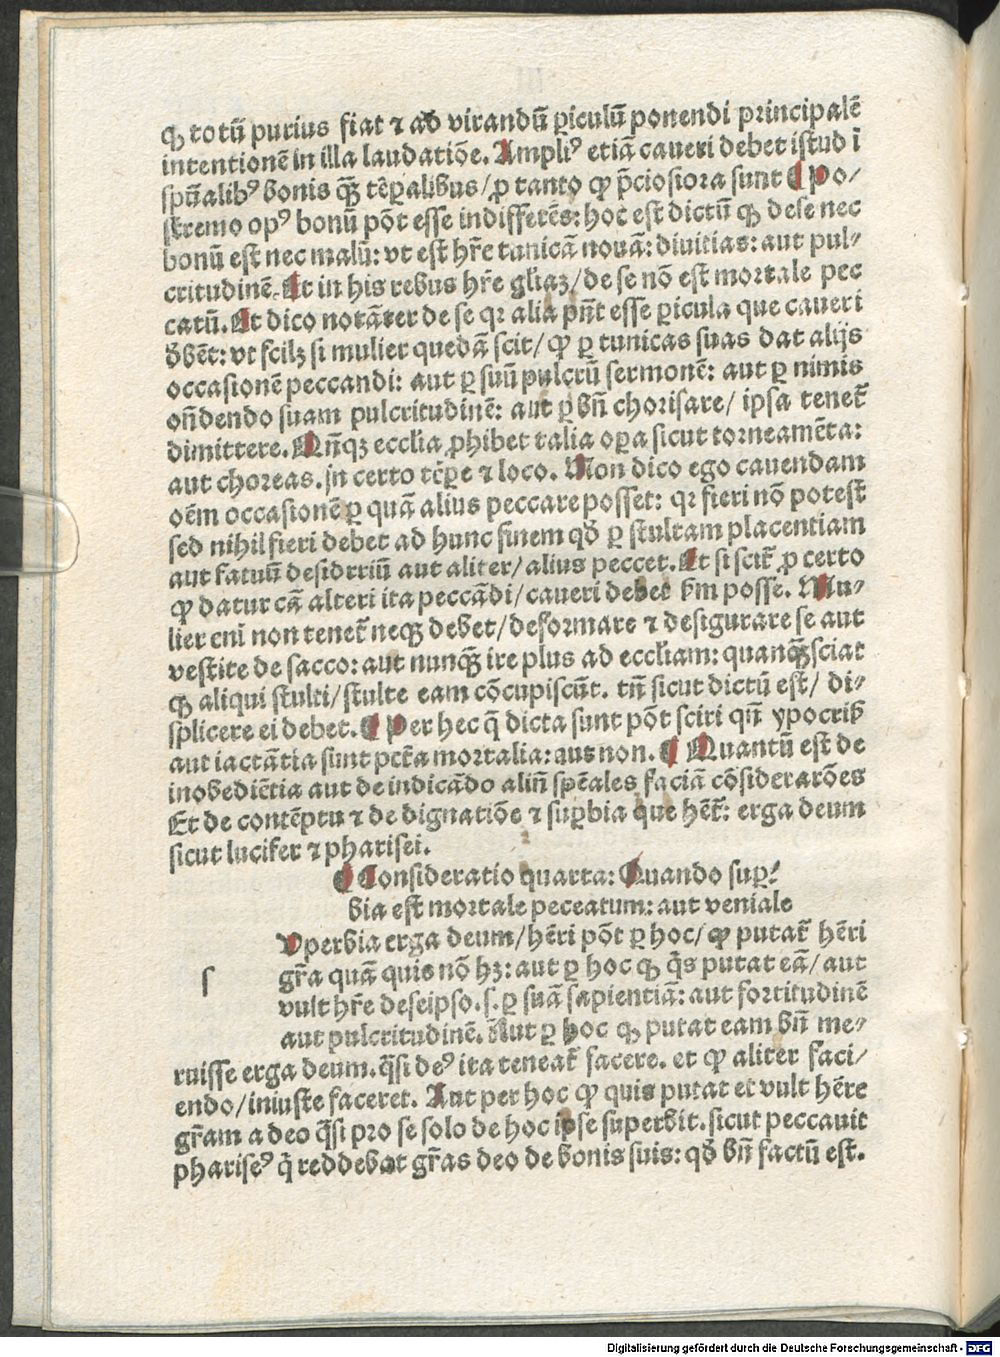 ꝙ totū purius fiat ⁊ ad vitandū ꝑiculū ponendi principalē
intentionē in illa laudatiōe. Ampliꝰ etiā caueri debet istud ī
spūalibꝰ bonis qꝫ̄ tēꝑalibus/ ꝓ tanto ꝙ p̄ciosiora sunt ¶ Po/
stremo opꝰ bonū pōt esse indifferēs: hoc est dictū ꝙ de se nec
bonū est nec malū: vt est hr̄e tunicā nouā: diuitias: aut pul⸗
critudinē. Et in his rebus hr̄e gl̄iaꝫ/ de se nō est mortale pec
catū. Et dico notāter de se qꝛ alia pn̄t esse ꝑicula que caueri
dn̄t: vt scilꝫ si mulier quedā scit/ ꝙ ꝑ tunicas suas dat alijs
occasionē peccandi: aut ꝑ suū pulcrū sermonē: aut ꝑ nimis
on̄dendo suam pulcritudinē: aut ꝑ bn̄ chorisare/ ipsa tenet̄
dimittere. Qn̄qꝫ ecclia ꝓhibet talia oꝑa sicut torneamēta:
aut choreas. in certo tēꝑe ⁊ loco. Non dico ego cauendam
oēm occasionē ꝑ quā alius peccare posset: qꝛ fieri nō potest
sed nihil fieri debet ad hunc finem qd̄ ꝑ stultam placentiam
aut fatuū desidrriū aut aliter/ alius peccet. Et si scit̄ ꝓ certo
ꝙ datur cā alteri ita peccādi/ caueri debet sm̄ posse. Mu⸗
lier eni non tenet̄ neqꝫ debet/ deformare ⁊ desigurare se aut
vestire de sacco: aut nunqꝫ̄ ire plus ad eccliam: quanqꝫ̄ sciat
ꝙ aliqui stulti/ stulte eam cōcupiscūt. tn̄ sicut dictū est/ di⸗
splicere ei debet. ¶ Per hec q̄ dicta sunt pōt sciri qn̄ ypocris̄
aut iactātia sunt pctā mortalia: aut non. ¶ Quantū est de
inobediētia aut de iudicādo alin̄ spēales faciā cōsideratōes
Et de contēptu ⁊ de dignatiōe ⁊ suꝑbia que hēt̄: erga deum
sicut lucifer ⁊ pharisei.
¶ Consideratio quarta: Quando suꝑ⸗
bia est mortale peccatum: aut veniale
Vperbia erga deum/ hēri pōt ꝑ hoc/ ꝙ putat̄ hēri
s gr̄a quā quis nō hꝫ: aut ꝑ hoc ꝙ q̄s putat eā/ aut
vult hr̄e deseipso. s. ꝑ suā sapientiā: aut fortitudinē
aut pulcritudinē. Aut ꝑ hoc ꝙ putat eam bn̄ me⸗
ruisse erga deum. q̄si deꝰ ita teneat̄ facere. et ꝙ aliter faci/
endo/ iniuste faceret. Aut per hoc ꝙ quis putat et vult hēre
gr̄am a deo q̄si pro se solo de hoc ipse superbit. sicut peccauit
phariseꝰ q̄ reddebat gr̄as deo de bonis suis: qd̄ bn̄ factū est.
Digitalisierung gefördert durch die Deutsche Forschungsgemeinschaft - DFG